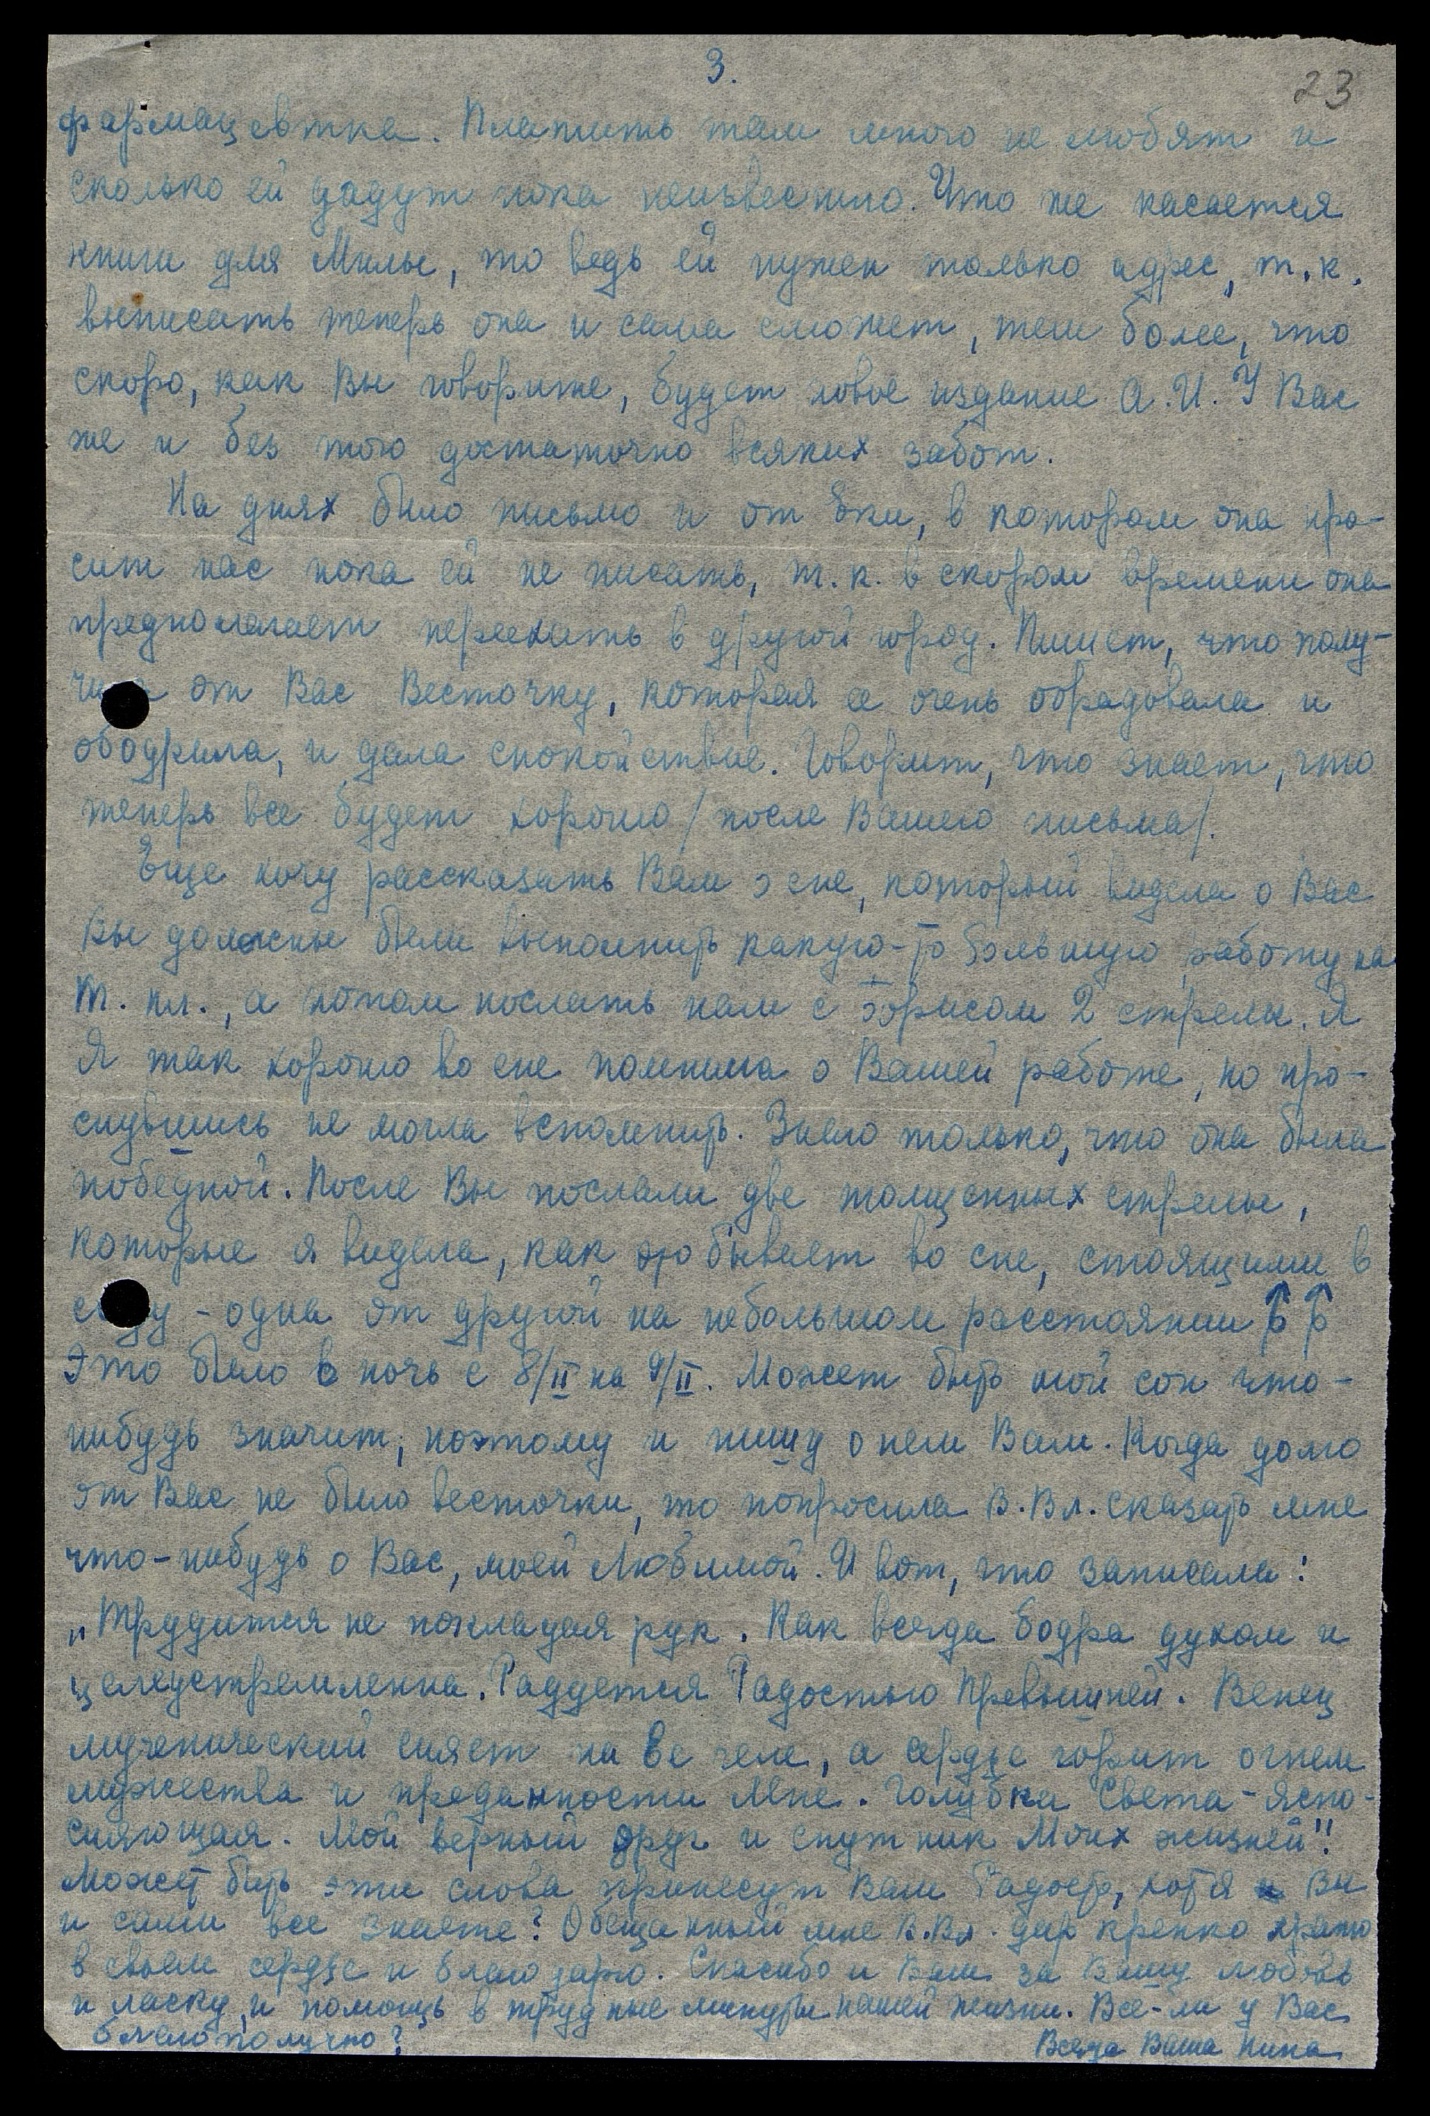 3.
23
фармацевтка. Платить там много не любят и
сколько ей дадут пока неизвестно. Что же касается
книги для Милы, то ведь ей нужен только адрес, т.к.
выписать теперь она и сама сможет, тем более, что
скоро, как Вы говорите, будет новое издание А.И. У Вас
же и без того достаточно всяких забот.
На днях было письмо и от Еки, в котором она про-
сит нас пока ей не писать, т.к. в скором времени она
предполагает переехать в другой город. Пишет, что полу-
чила от Вас Весточку, которая ее очень обрадовала и
ободрила, и дала спокойствие. Говорит, что знает, что
теперь все будет хорошо /после Вашего письма/.
Еще хочу рассказать Вам о сне, который видела о Вас
Вы должны были выполнить какую-то большую работу на
т. пл., а потом послать нам с Борисом 2 стрелы. Я
Я так хорошо во сне помнила о Вашей работе, но про-
снувшись не могла вспомнить. Знаю только, что она была
победной. После Вы послали две толщенных стрелы,
которые я видела, как это бывает во сне, стоящими в
саду - одна от другой на небольшом расстоянии
Это было в ночь с 8/II на 9/II. Может быть мой сон что-
нибудь значит, поэтому и пишу о нем Вам. Когда долго
от Вас не было весточки, то попросила В.Вл. сказать мне
что-нибудь о Вас, моей Любимой. И вот, что записала:
„Трудится не покладая рук. Как всегда бодра духом и
целеустремленна. Радуется Радостью Превышней. Венец
мученический сияет на Ее челе, а сердце горит огнем
мужества и преданности Мне. Голубка Света - ясно-
сияющая. Мой верный друг и спутник Моих жизней"!
Может быть эти слова принесут Вам Радость, хотя Вы
и сами все знаете? Обещанный мне В.Вл. дар крепко храню
в своем сердце и благодарю. Спасибо и Вам за Вашу любовь
и ласку, и помощь в трудные минуты нашей жизни. Все-ли у Вас
благополучно?
Всегда Ваша Нина